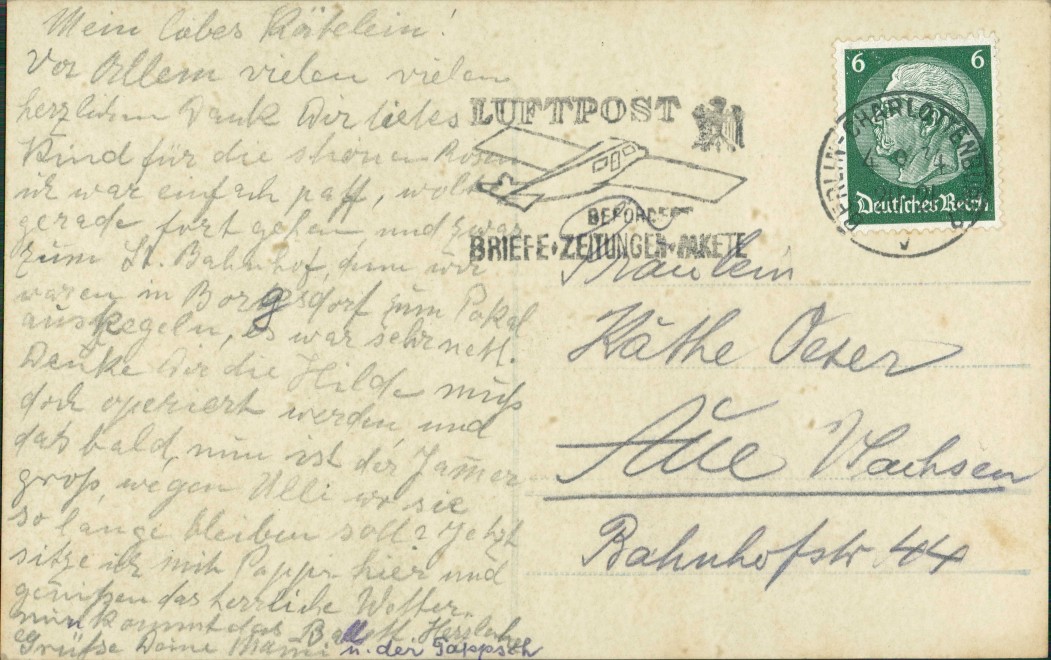 Mein liebes Kätelein!
Vor Allem vielen vielen
herzlichen Dank Dir liebes
Kind für die schönen Rosen
ich war einfach paff, wollt
gerade fort gehen und zwar
zum St. Bahnhof, denn wir
waren in Borgsdorf zum Pokal
auskegeln, es war sehr nett.
Denke Dir die Hilde muß
doch operiert werden, und
das bald, nun ist der Jam̄er
groß, wegen Ulli wo sie
so lange bleiben soll? Jetzt
sitze ich mit Pappr hier und
genießen das herrliche Wetter.
nun kommt das Herzliche
Grüße Deine Mami u. der Pappsch
LUFTPOST
BEFÖRDERT
BRIEFE·ZEITUNGEN·PAKETE
6 6
Deutsches Reich
BERLIN-CHARLOTTENBURG
Fräulein
Käthe Oeser
Aue i/Sachsen
Bahnhofstr. 44